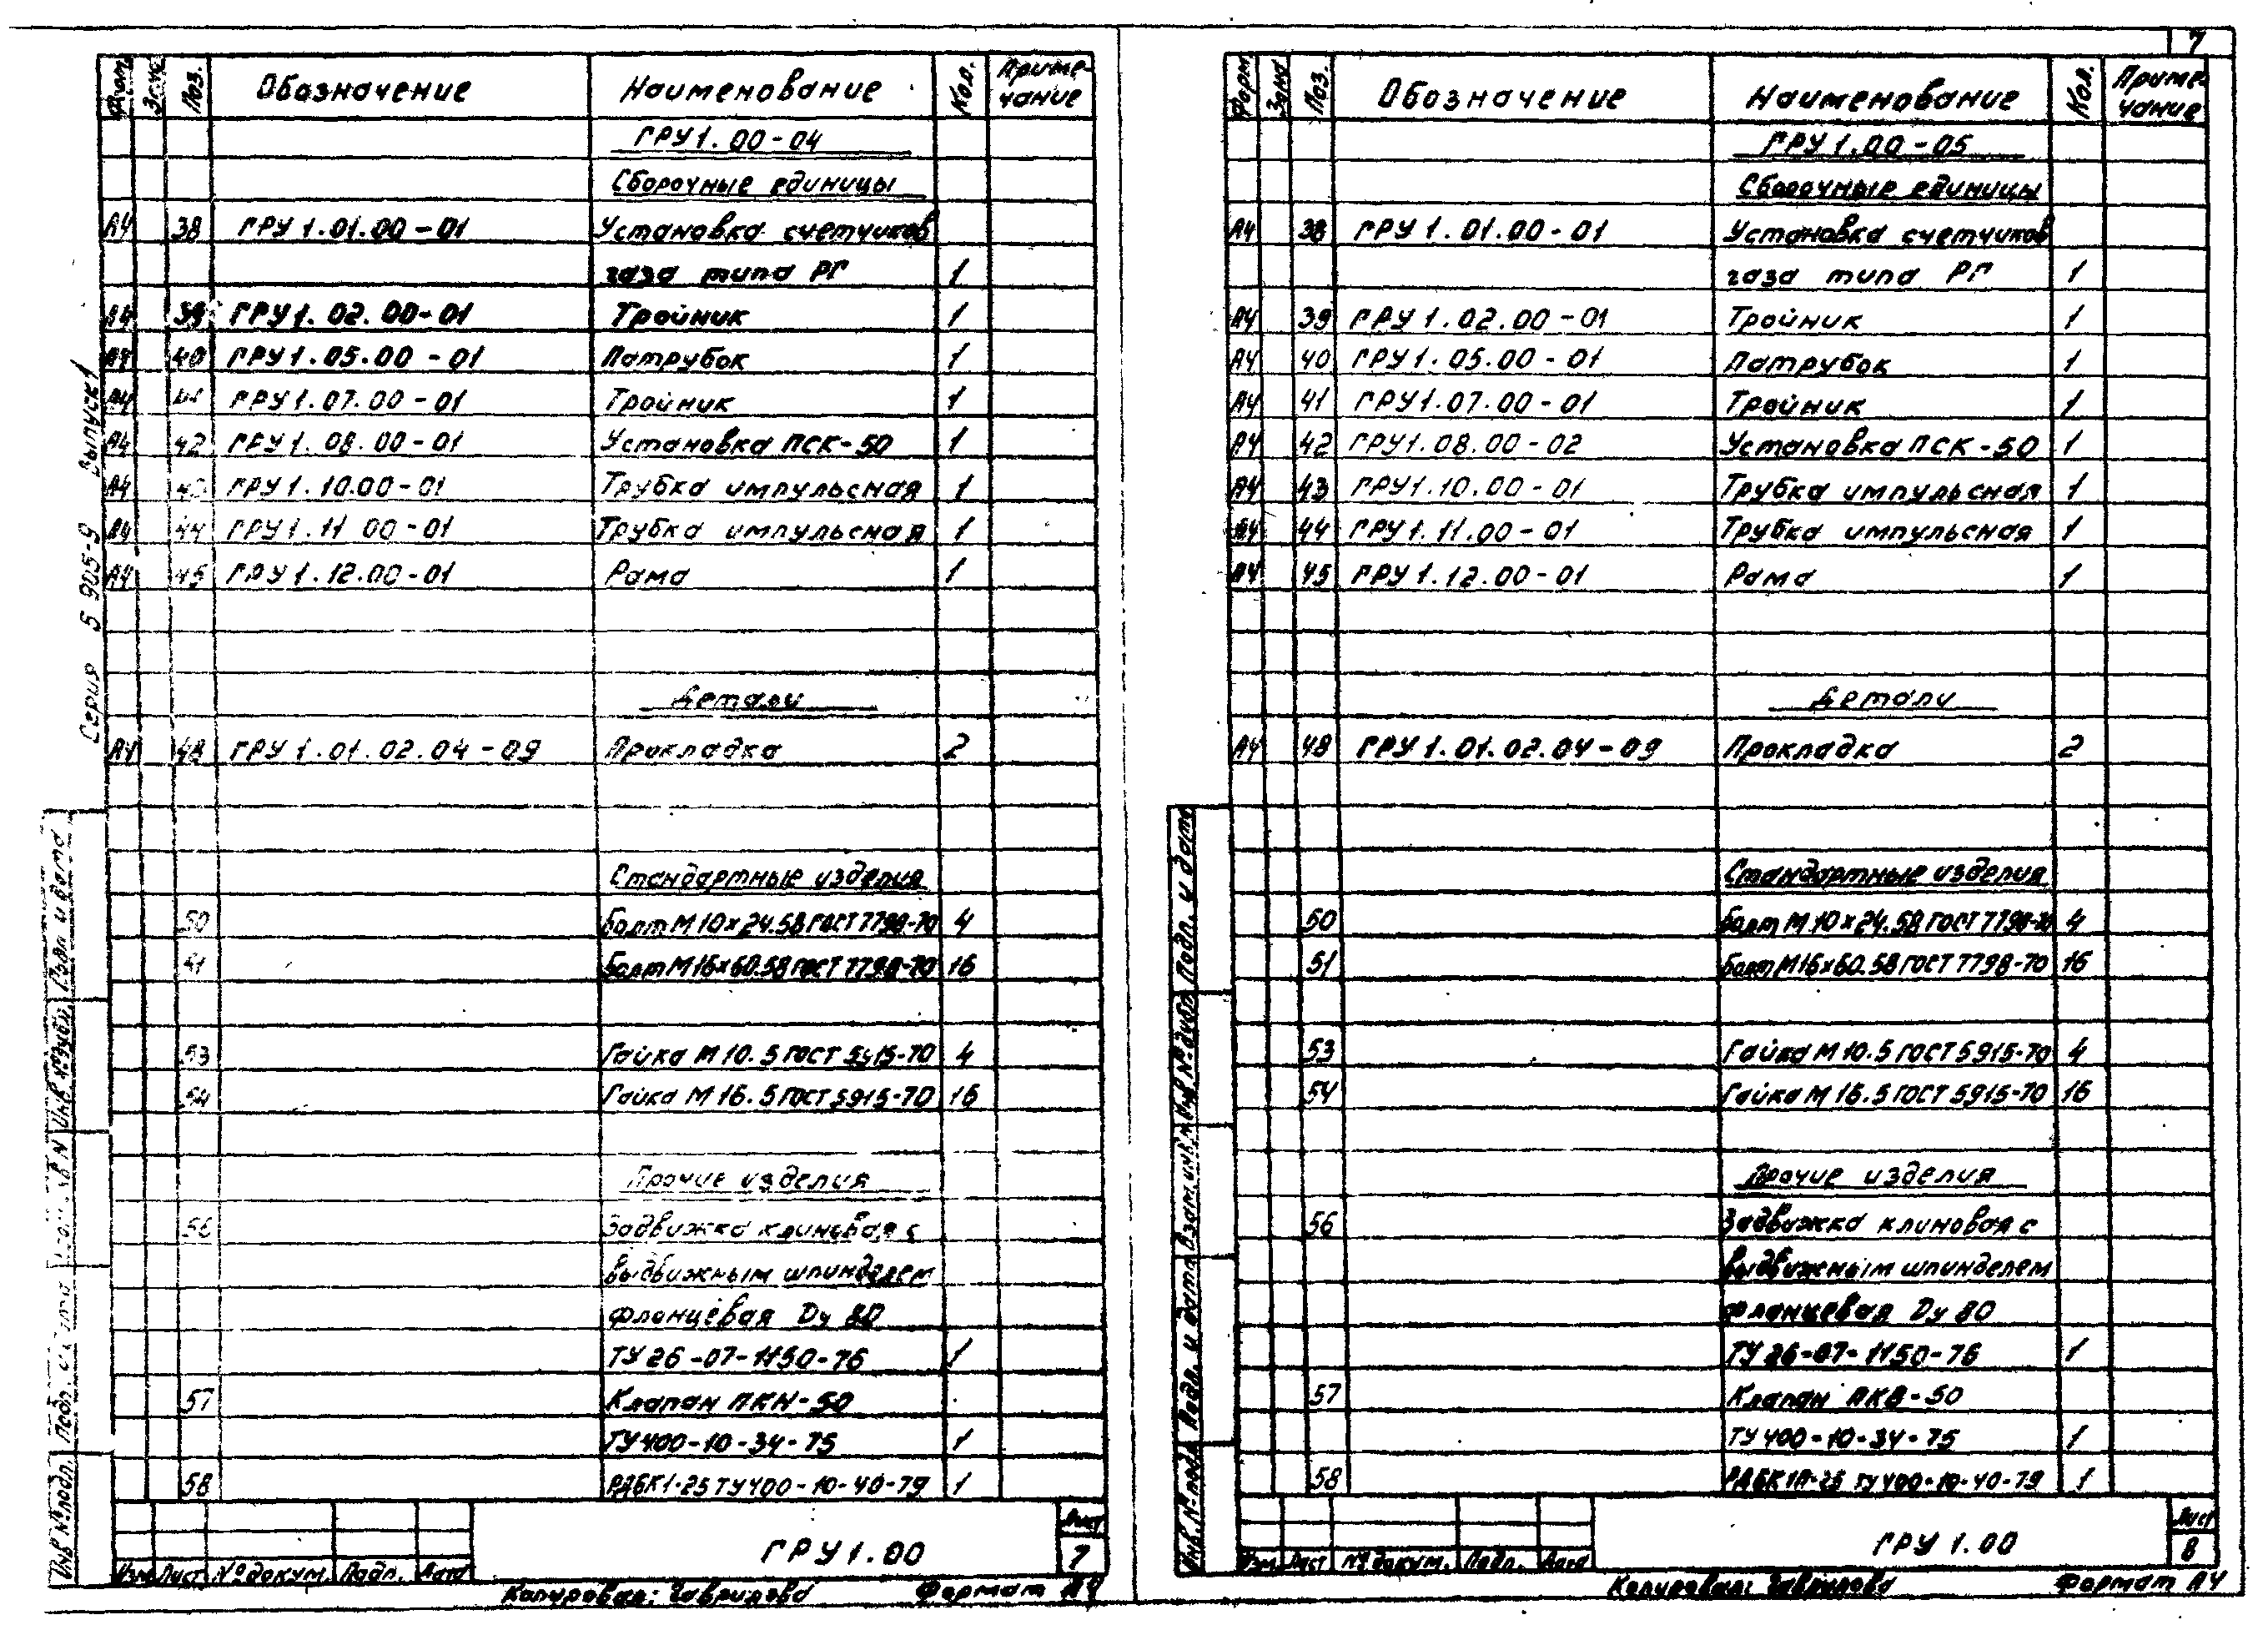 7
Серия 5 905-9 Выпуск 1
Форм. Зона Поз. Обозначение Наименование Кол. Приме-
чание
ГРУ 1.00-04
Сборочные единицы
А4 38 ГРУ 1.01.00-01 Установка счетчиков
газа типа РГ 1
А4 39 ГРУ 1.02.00-01 Тройник 1
А4 40 ГРУ 1.05.00-01 Патрубок 1
А4 41 ГРУ 1.07.00-01 Тройник 1
А4 42 ГРУ 1.08.00-01 Установка ПСК-50 1
А4 43 ГРУ 1.10.00-01 Трубка импульсная 1
А4 44 ГРУ 1.11 00-01 Трубка импульсная 1
А4 45 ГРУ 1.12.00-01 Рама 1
Детали
А4 48 ГРУ 1.01.02.04-09 Прокладка 2
Стандартные изделия
50 Болт М 10х24.58 ГОСТ 7798-70 4
51 Болт М16х60.58 ГОСТ 7798-70 16
53 Гайка М 10.5 ГОСТ 5915-70 4
54 Гайка М 16.5 ГОСТ 5915-70 16
Прочие изделия
56 Задвижка клиновая с
выдвижным шпинделем
фланцевая Dу 80
ТУ 26-07-1150-76 1
57 Клапан ПКН-50
ТУ 400-10-34-75 1
58 РДБК1-25 ТУ 400-10-40-79 1
Инв № подл. Подп. и дата Взам. инв № Инв № дубл. Подп. и дата
Изм Лист № докум. Подп. Дата
ГРУ 1.00
Лист
7
Копировал: Гаврилова Формат А4
Форм Зона Поз. Обозначение Наименование Кол. Приме-
чание
ГРУ 1.00-05
Сборочные единицы
А4 38 ГРУ 1.01.00-01 Установка счетчиков
газа типа РГ 1
А4 39 ГРУ 1.02.00-01 Тройник 1
А4 40 ГРУ 1.05.00-01 Патрубок 1
А4 41 ГРУ 1.07.00-01 Тройник 1
А4 42 ГРУ 1.08.00-02 Установка ПСК-50 1
А4 43 ГРУ 1.10.00-01 Трубка импульсная 1
А4 44 ГРУ 1.11.00-01 Трубка импульсная 1
А4 45 ГРУ 1.12.00-01 Рама 1
Детали
А4 48 ГРУ 1.01.02.04-09 Прокладка 2
Стандартные изделия
50 Болт М 10х24.58 ГОСТ 7798-70 4
51 Болт М16х60.58 ГОСТ 7798-70 16
53 Гайка М 10.5 ГОСТ 5915-70 4
54 Гайка М 16.5 ГОСТ 5915-70 16
Прочие изделия
56 Задвижка клиновая с
выдвижным шпинделем
фланцевая Dу 80
ТУ 26-07-1150-76 1
57 Клапан ПКВ-50
ТУ 400-10-34-75 1
58 РДБК1П-25 ТУ 400-10-40-79 1
Инв. № подл. Подп. и дата Взам инв. № Инв № дубл. Подп. и дата
Изм Лист № докум. Подп. Дата
ГРУ 1.00
Лист
8
Копировал: Гаврилова Формат А4